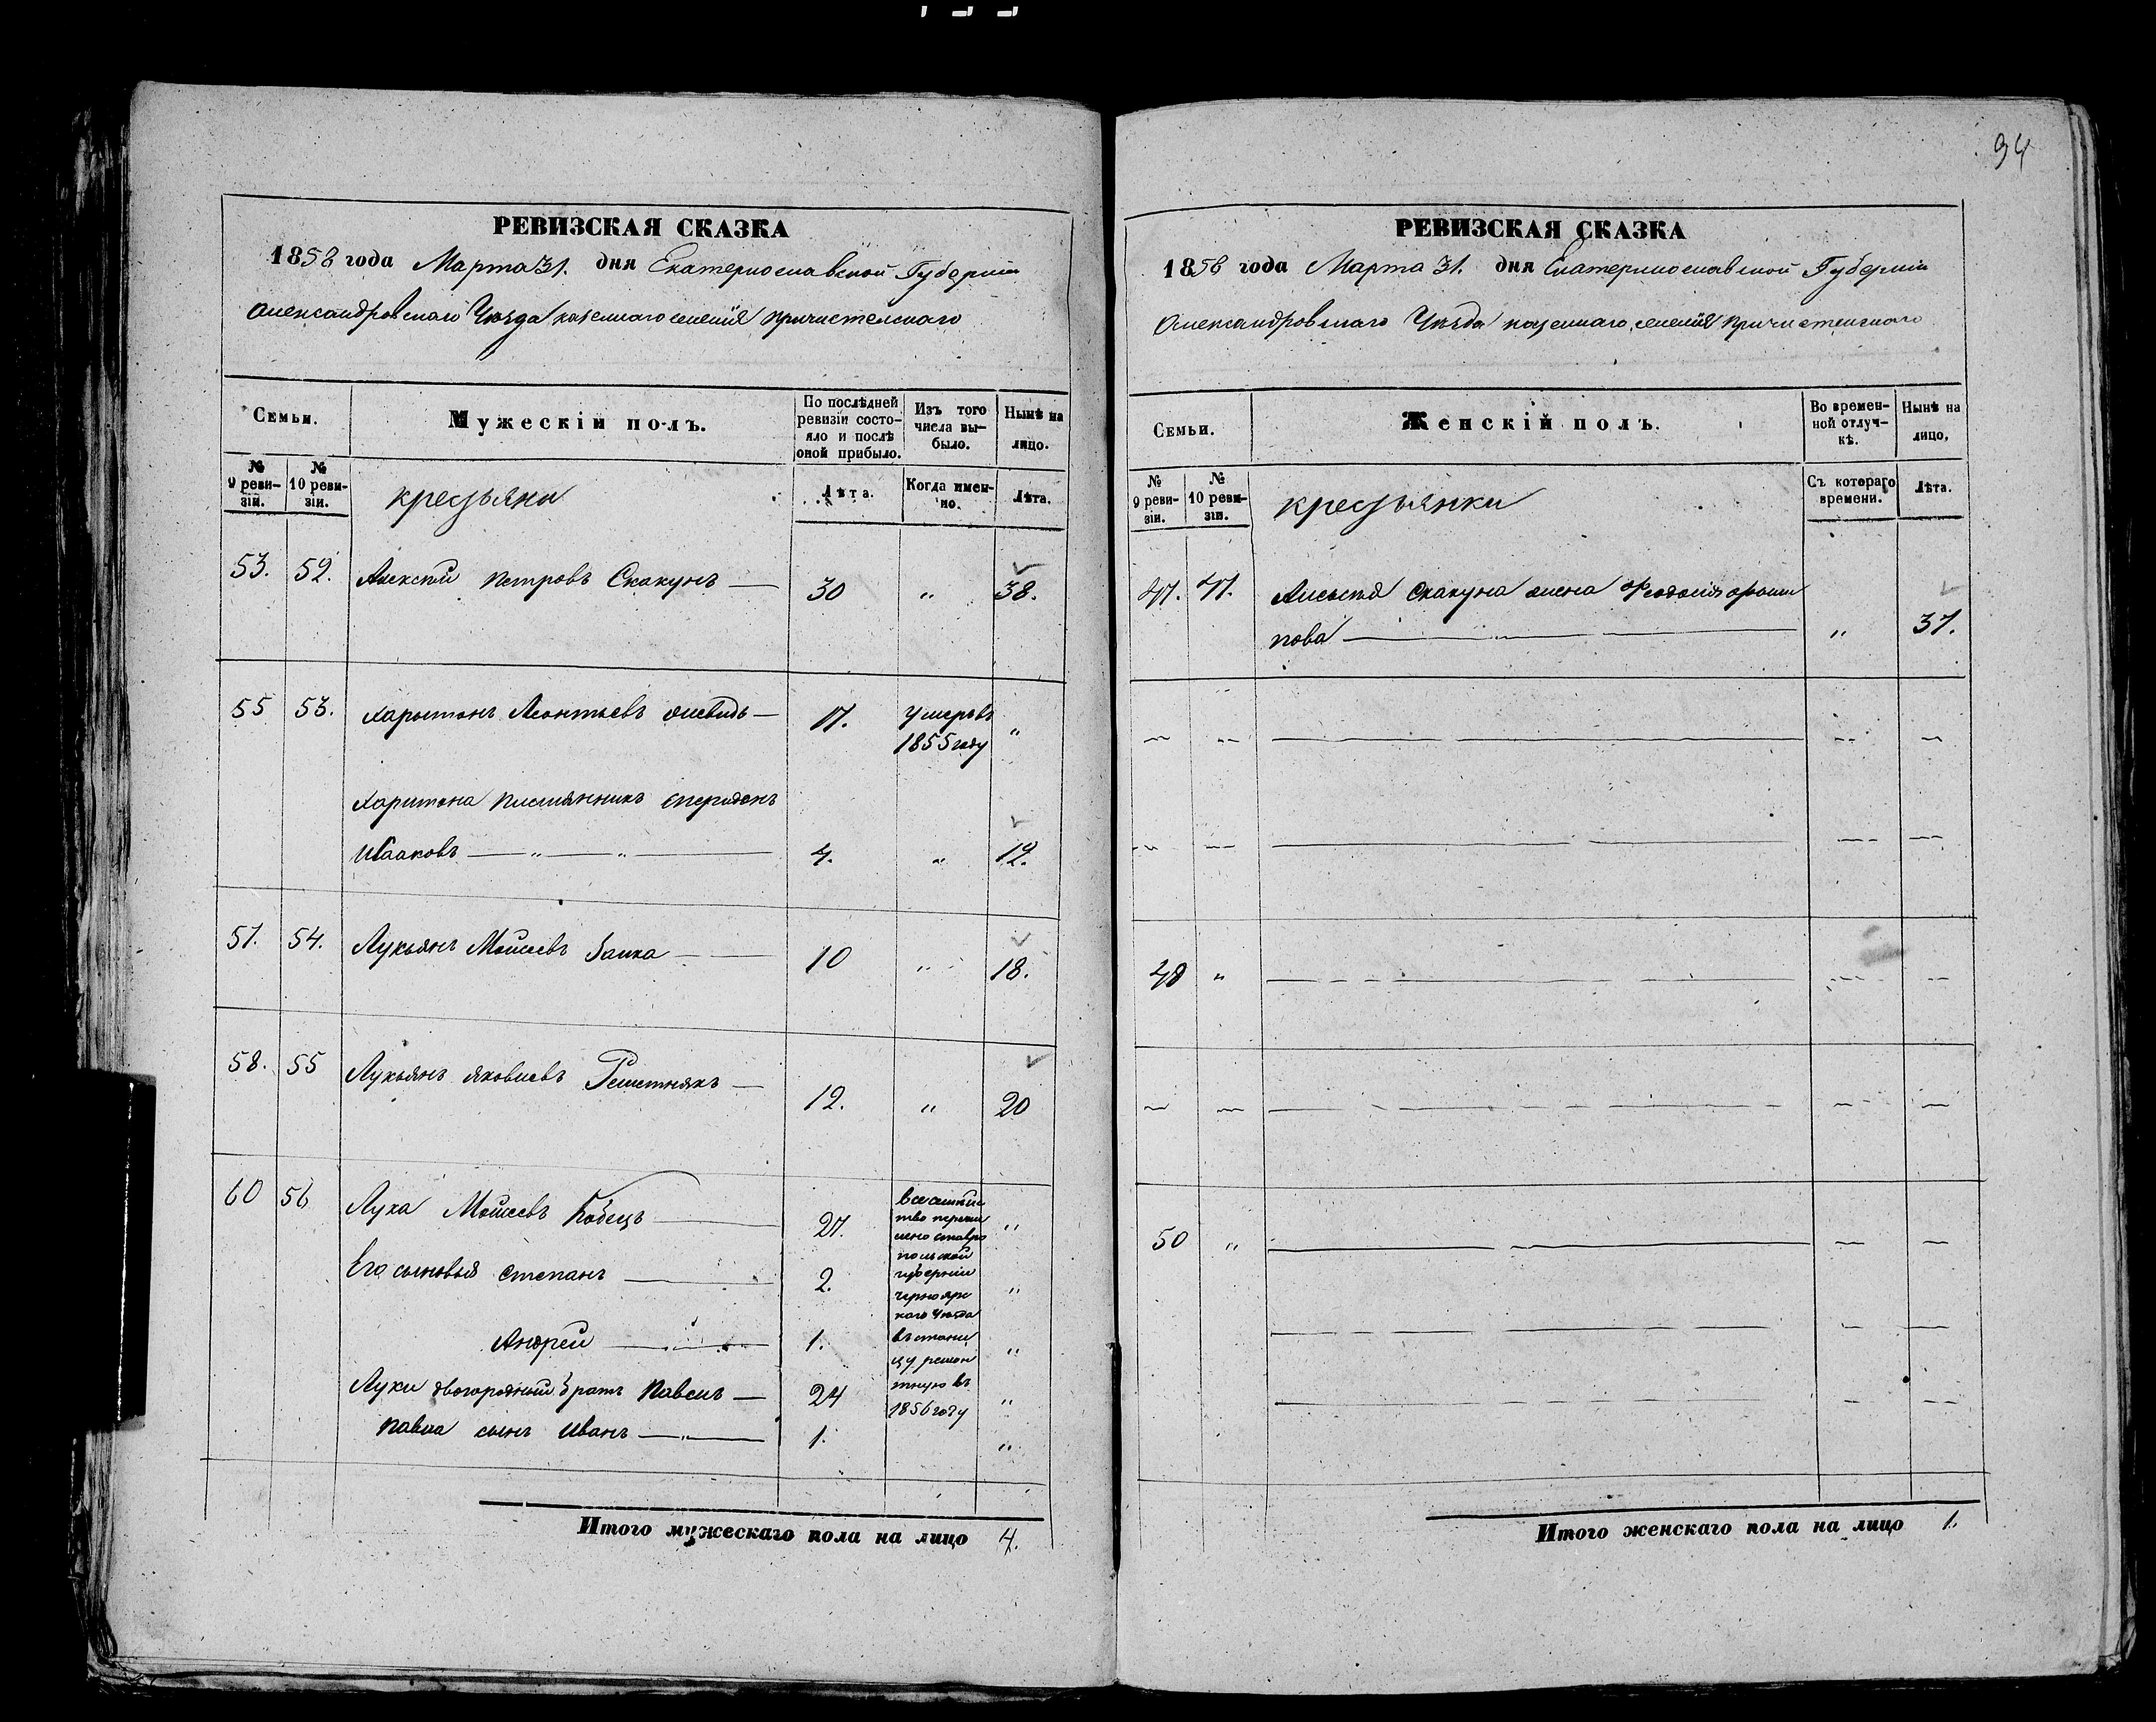 94
РЕВИЗСКАЯ СКАЗКА
1858 года Марта 31. дня Екатеринославской Губернии
Александровского Уезда казенного селения Пречистенского
Семьи.
Мужескій полъ.
По послѣдней ревизіи состо-
яло и послѣ оной прибыло.
Изъ того числа вы-
было.
Нынѣ на лицо.
№ 9 реви-
зіи.
№ 10 реви-
зіи.
крестьяне
Лѣта.
Когда имен-
но.
Лѣта.
53. 52. Алексѣй Петровъ Скакунъ — 30 „ 38.
55 53. Харитонъ Леонтьевъ — 17. Умеръ въ
1855 году „
Харитона племянникъ Спиридонъ
Исааковъ — „ — „ — 4. „ 12.
57. 54. Лукьянъ Моисеевъ Заика — 10 „ 18.
58. 55 Лукьянъ Яковлевъ Решетнякъ — 12. „ 20
60 56 Лука Моисеевъ Кобецъ — 27. „
Его сыновья Степанъ — 2. „
Андрей — 1. „
Луки двоюродный братъ Павелъ — 24 „
Павла сынъ Иванъ — „ — 1. „
все семей
ство перечи
слено Ставро
польской
губерніи
Черноярс
каго Уезда
въ стани
цу Ремон
тную въ
1856 году
Итого мужескаго пола на лицо 4.
РЕВИЗСКАЯ СКАЗКА
1858 года Марта 31. дня Екатеринославской Губернии
Александровского Уезда казенного селения Пречистенского
Семьи.
Женскій полъ.
Во времен-
ной отлуч-
кѣ.
Нынѣ на лицо.
№ 9 реви-
зіи.
№ 10 реви-
зіи.
крестьянки
Съ котораго времени.
Лѣта.
47. 47. Алексѣя Скакуна жена Феодосія
пова — „ 37.
48 „
50 „
Итого женскаго пола на лицо 1.